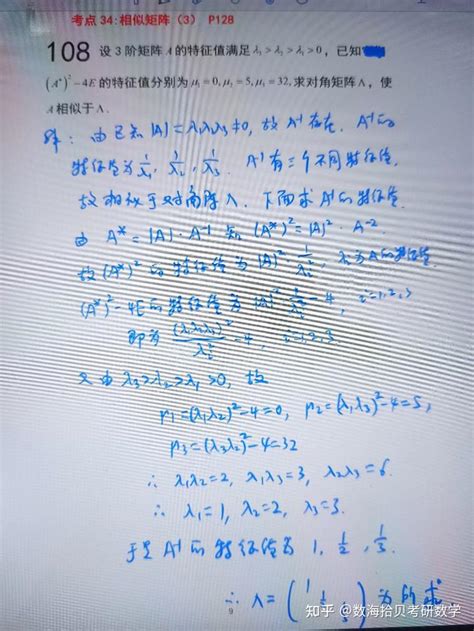 考点 34:相似矩阵（3） P128
108 设 3 阶矩阵 A 的特征值满足 λ₃ > λ₂ > λ₁ > 0，已知
(A*)² − 4E 的特征值分别为 μ₁ = 0, μ₂ = 5, μ₃ = 32, 求对角矩阵 Λ，使
A 相似于 Λ.
解：由已知 |A| = λ₁λ₂λ₃ ≠ 0，故 A⁻¹ 存在. A⁻¹的
特征值为 1/λ₁, 1/λ₂, 1/λ₃. A⁻¹有三个不同特征值,
故相似于对角阵 Λ. 下面求 A⁻¹的特征值.
由 A* = |A|·A⁻¹ 知 (A*)² = |A|²·A⁻²
故 (A*)² 的特征值为 |A|² 1/λᵢ², λᵢ为A的特征值.
(A*)²−4E的特征值为 |A|² 1/λᵢ² − 4, i=1,2,3
即为 (λ₁λ₂λ₃)²/λᵢ² − 4, i=1,2,3.
又由 λ₃>λ₂>λ₁>0, 故
μ₁=(λ₁λ₂)²−4=0, μ₂=(λ₁λ₃)²−4=5,
μ₃=(λ₃λ₂)²−4=32
∴ λ₁λ₂=2, λ₁λ₃=3, λ₂λ₃=6.
∴ λ₁=1, λ₂=2, λ₃=3.
于是 A⁻¹的特征值为 1, 1/2, 1/3.
∴ Λ = (1 1/2 1/3) 为所求
9
知乎 @数海拾贝考研数学